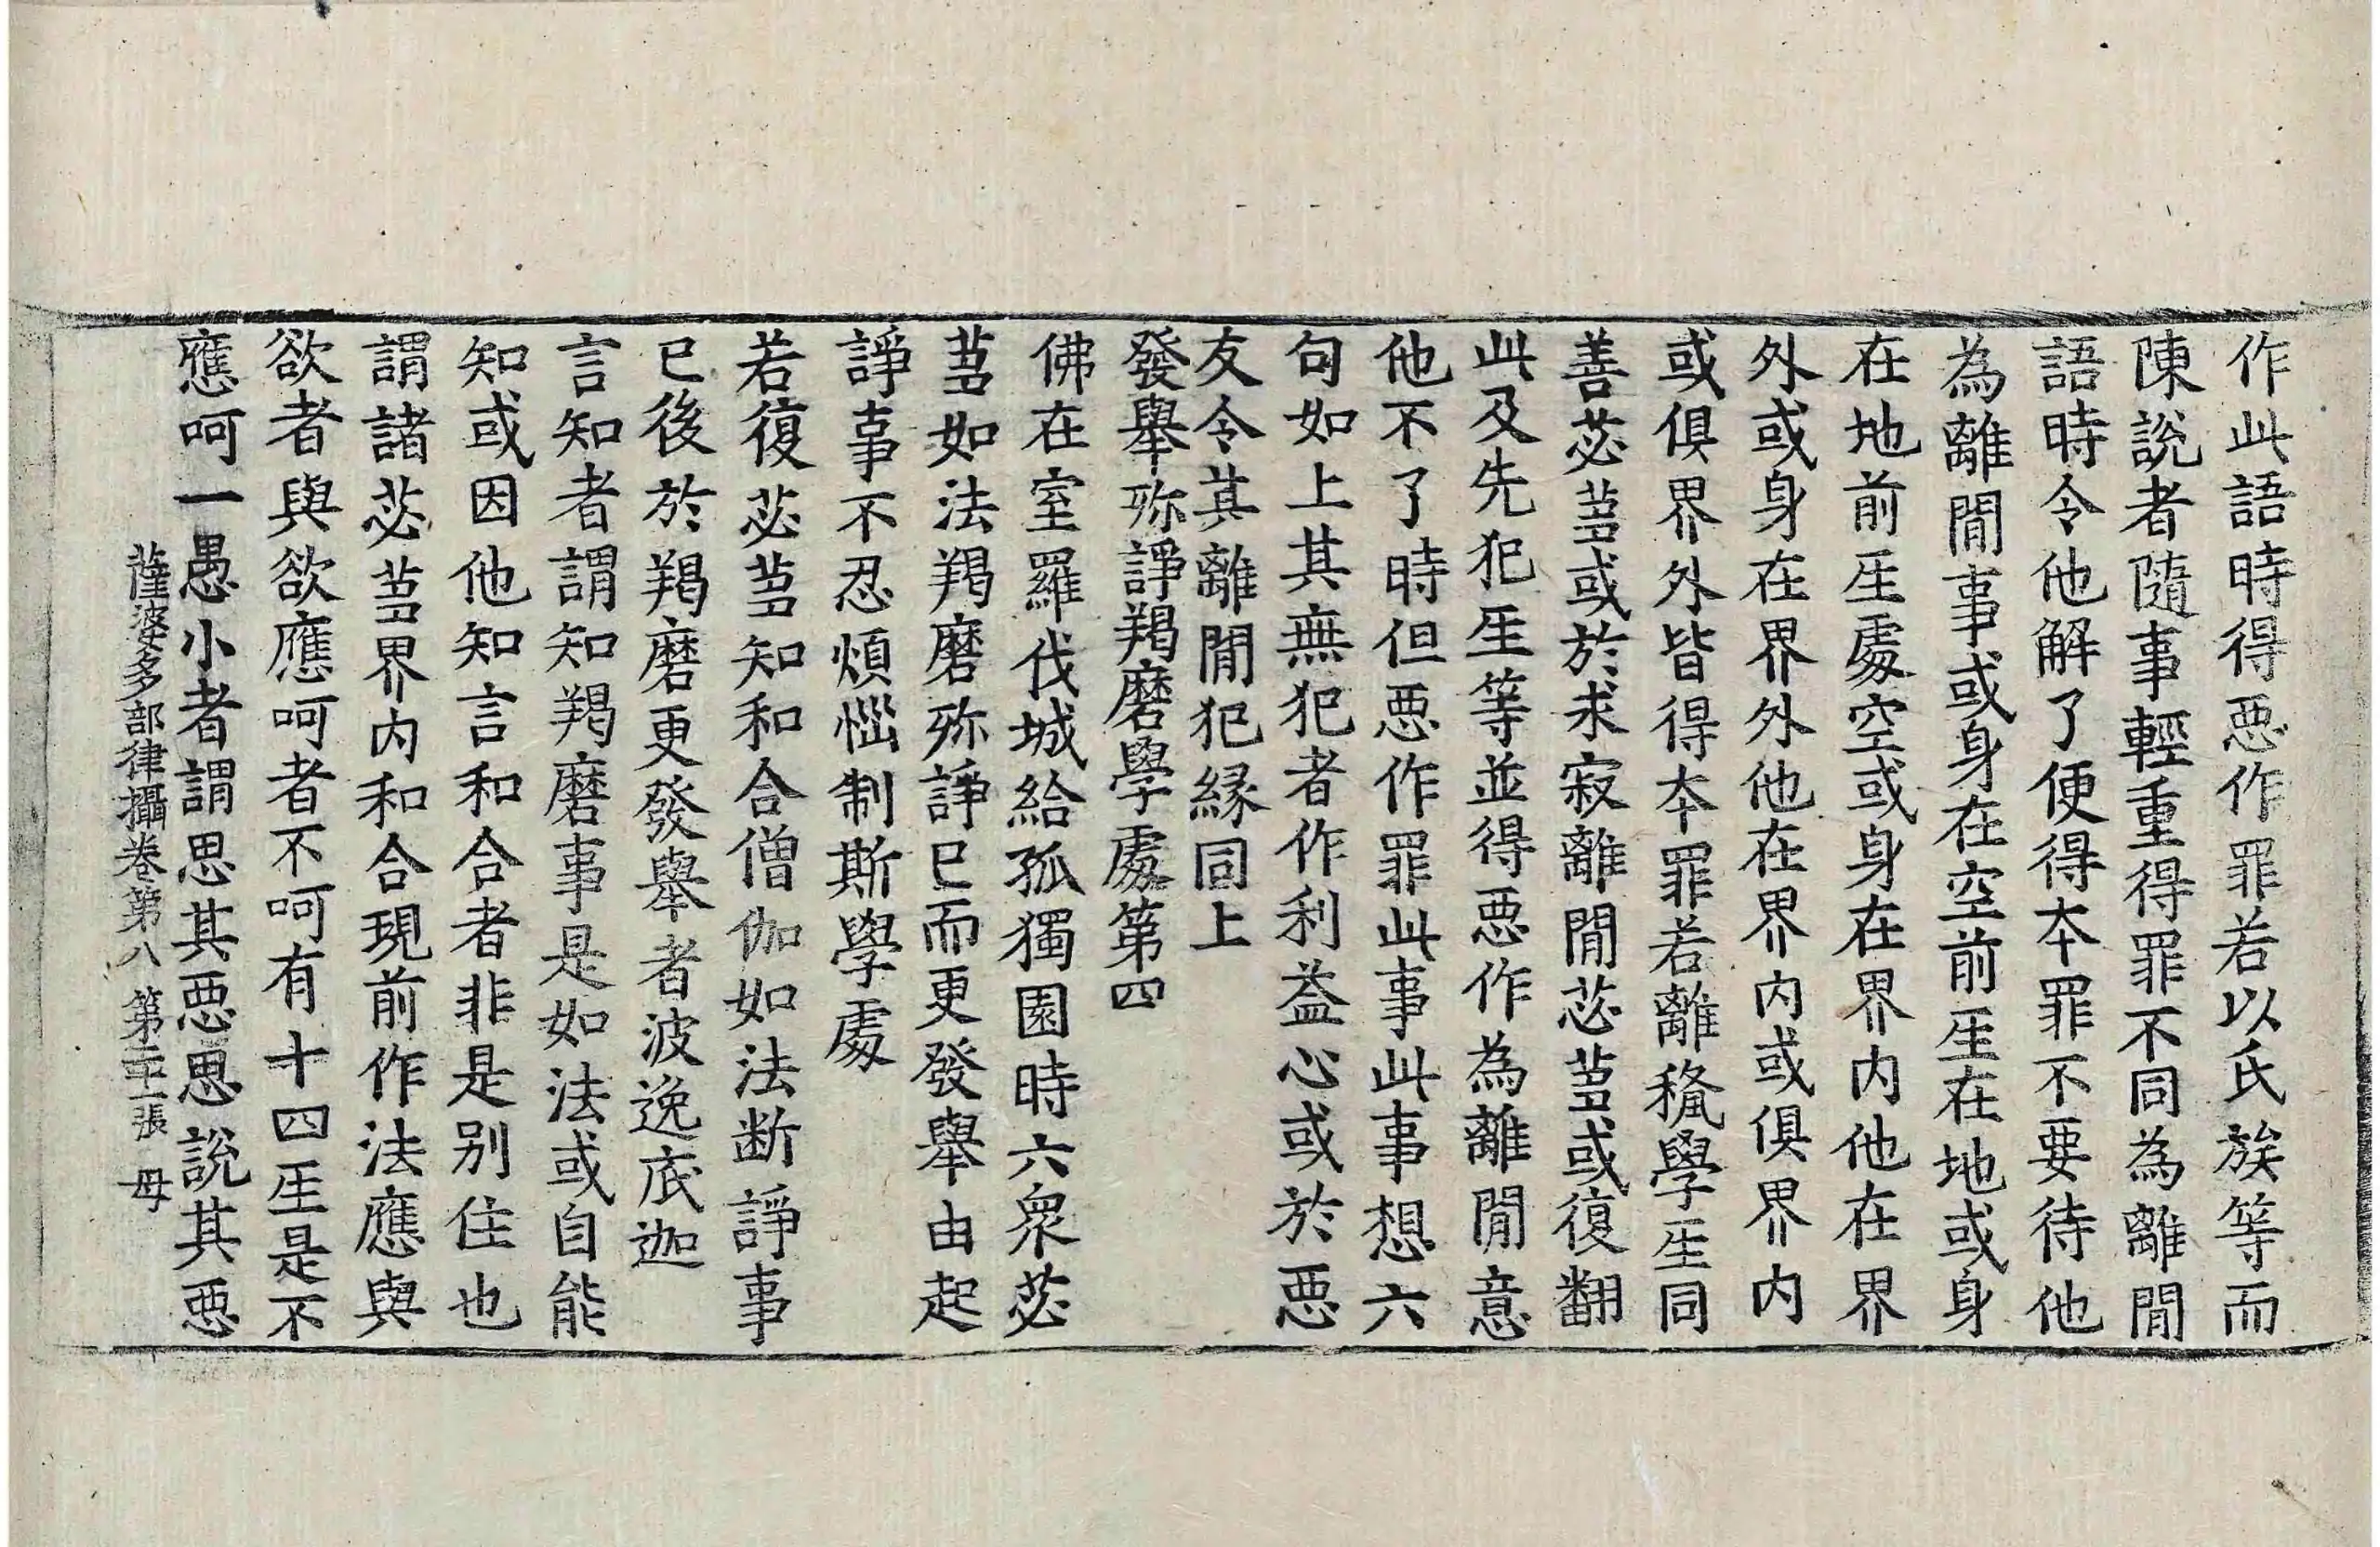 作此語時得惡作罪若以氏族等而
陳說者隨事輕重得罪不同為離間
語時令他解了便得本罪不要待他
為離間事或身在空前生在地或身
在地前生處空或身在界內他在界
外或身在界外他在界內或俱界內
或俱界外皆得本罪若離穢學生同
善苾蒭或於求寂離間苾蒭或復翻
此及先犯生等並得惡作為離間意
他不了時但惡作罪此事此事想六
句如上其無犯者作利益心或於惡
友令其離間犯緣同上
發舉殄諍羯磨學處第四
佛在室羅伐城給孤獨園時六眾苾
蒭如法羯磨殄諍已而更發舉由起
諍事不忍煩惱制斯學處
若復苾蒭知和合僧伽如法断諍事
已後於羯磨更發舉者波逸底迦
言知者謂知羯磨事是如法或自能
知或因他知言和合者非是別住也
謂諸苾蒭界內和合現前作法應與
欲者與欲應呵者不呵有十四生是不
應呵一愚小者謂思其惡思說其惡
薩婆多部律攝卷第八 第二十張 毋